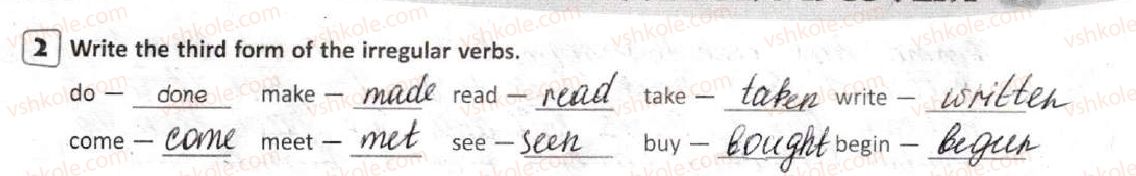 2 Write the third form of the irregular verbs.
do — done make — made read — read take — taken write — written
come — come meet — met see — seen buy — bought begin — begun